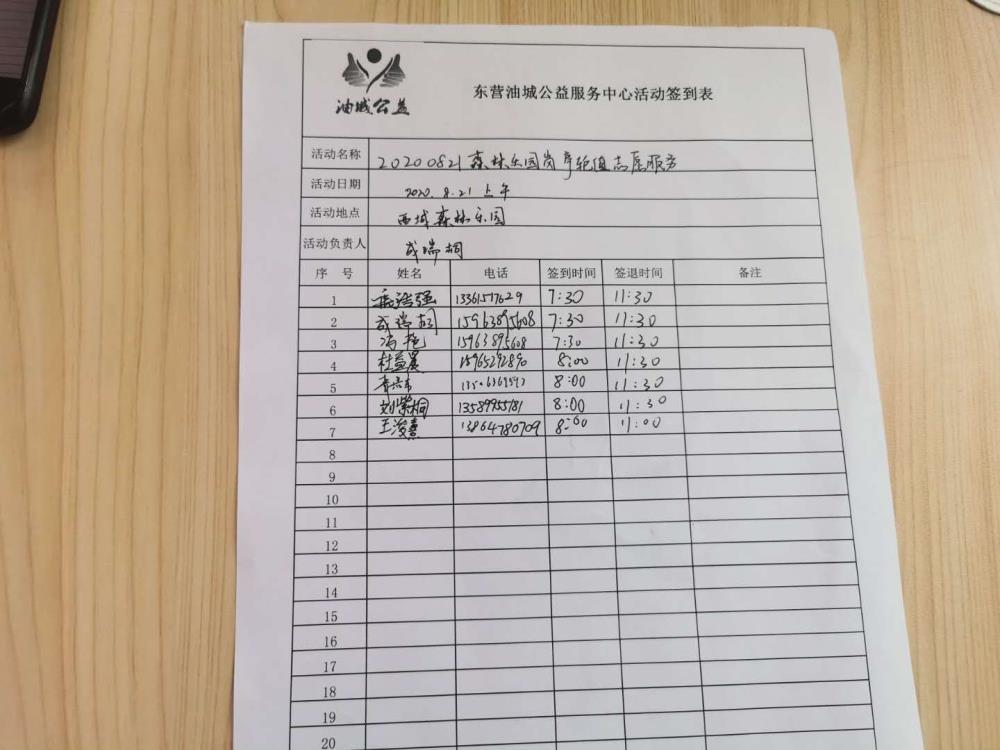 油城公益
东营油城公益服务中心活动签到表
活动名称 20200821森林乐园岗亭轮值志愿服务
活动日期 2020.8.21 上午
活动地点 西城森林乐园
活动负责人 成瑞桐
序 号 姓名 电话 签到时间 签退时间 备注
1 13361517629 7:30 11:30
2 成瑞桐 15963895608 7:30 11:30
3 冯艳 15963895608 7:30 11:30
4 杜益晨 15965292890 8:00 11:30
5 8:00 11:30
6 刘紫桐 13589955181 8:00 11:30
7 王浚熹 13864780709 8:00 11:00
8
9
10
11
12
13
14
15
16
17
18
19
20